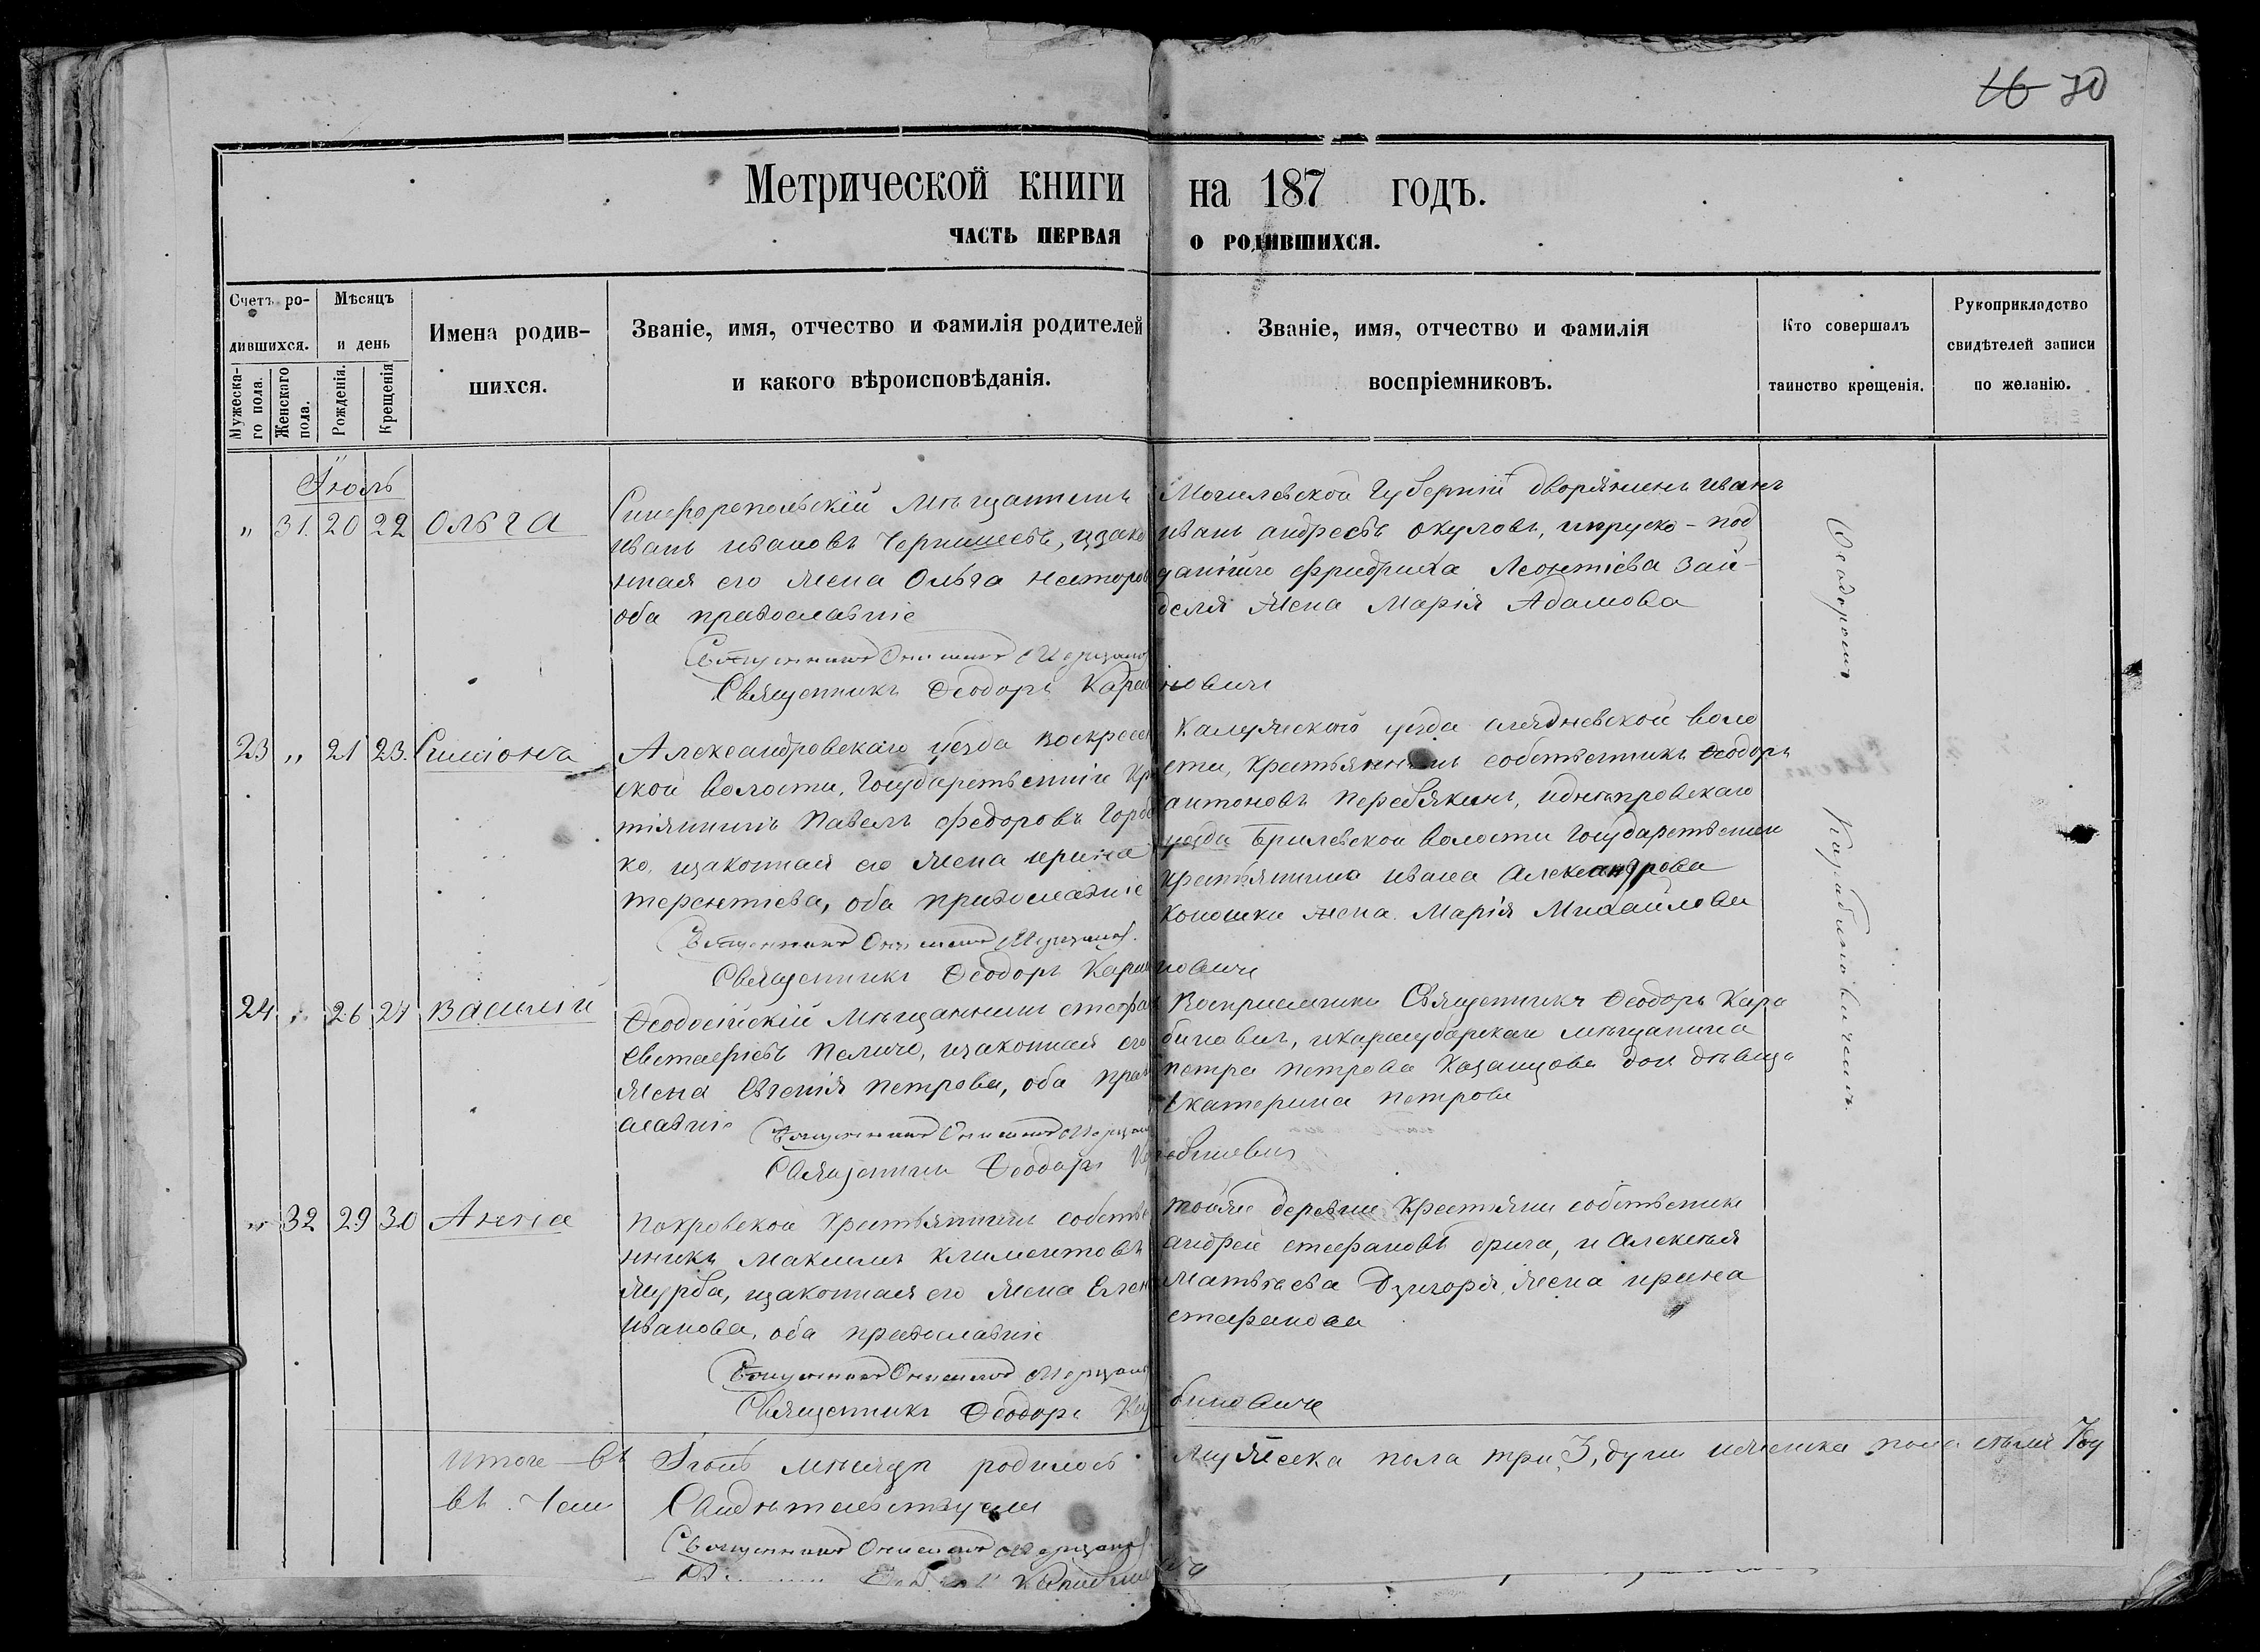 16 70
Метрической книги на 187 годъ.
ЧАСТЬ ПЕРВАЯ О РОДИВШИХСЯ.
Счетъ ро-
дившихся.
Мужеска-
го пола.
Женскаго
пола.
Мѣсяцъ
и день
Рожденія.
Крещенія
Имена родив-
шихся.
Званіе, имя, отчество и фамилія родителей
и какого вѣроисповѣданія.
Званіе, имя, отчество и фамилія
воспріемниковъ.
Кто совершалъ
таинство крещенія.
Рукоприкладство
свидѣтелей записи
по желанію.
Іюль
" 31. 20 22 Ольга
Симферопольскій мѣщанинъ
Иванъ Ивановъ Чернышевъ, изако
нная его жена Ольга Несторов
оба православніе
Священникъ
Священникъ Ѳеодоръ Караб
Могилевской Губерніи дворянинъ Иванъ
Иванъ Андреевъ Окуловъ, ипруско-под
даннаго Фридриха Леонтіева Зай-
деля жена Марія Адамова
иновичъ
23 " 21 23. Симіонъ
Александровскаго уѣзда Воскресен
ской волости, Государственній Кре
тіянинъ Павелъ Федоровъ Горбе
ко, изаконная его жена Ирина
Терентіева, оба православніе
Священникъ
Священникъ Ѳеодоръ Караб
уѣзда воло
сти, Крестьянинъ собственникъ Ѳеодоръ
Антоновъ Перевязкинъ, иднѣпровскаго
уѣзда Брилевской волости Государственн
Крестьянина Ивана Александрова
Коношки жена Марія Михайлова
иновичъ
24 " 26 27 Василій
Ѳеодосійскій мѣщанинъ Стефан
Евстафіевъ Пеличо, изаконная его
жена Евгенія Петрова, оба прав
ославніе
Священникъ
Священникъ Ѳеодоръ Кар
Восприемники Священникъ Ѳеодоръ Кара
биновичъ, икарасубазарскаго мѣщанина
Петра Петрова Казанцова доч дѣвица
Екатерина Петрова
абиновичъ
" 32 29 30 Анна
Покровской Крестьянинъ собстве
нникъ Максимъ Климентовъ
Журба, изаконная его жена Елен
Иванова, оба православніе
Священникъ
Священникъ Ѳеодоръ Кар
тойже деревни Крестяни собственник
Андрей Стефановъ брича, и Алексѣя
Матвѣева Дзигоря, жена Ирина
Стефанова
биновичъ
Ѳеодоромъ Карабиновичемъ.
Итого въ Іюлѣ мѣсяцѣ родилось мужеска пола три 3, души
въ чем Свидѣтельствуемъ
Священникъ